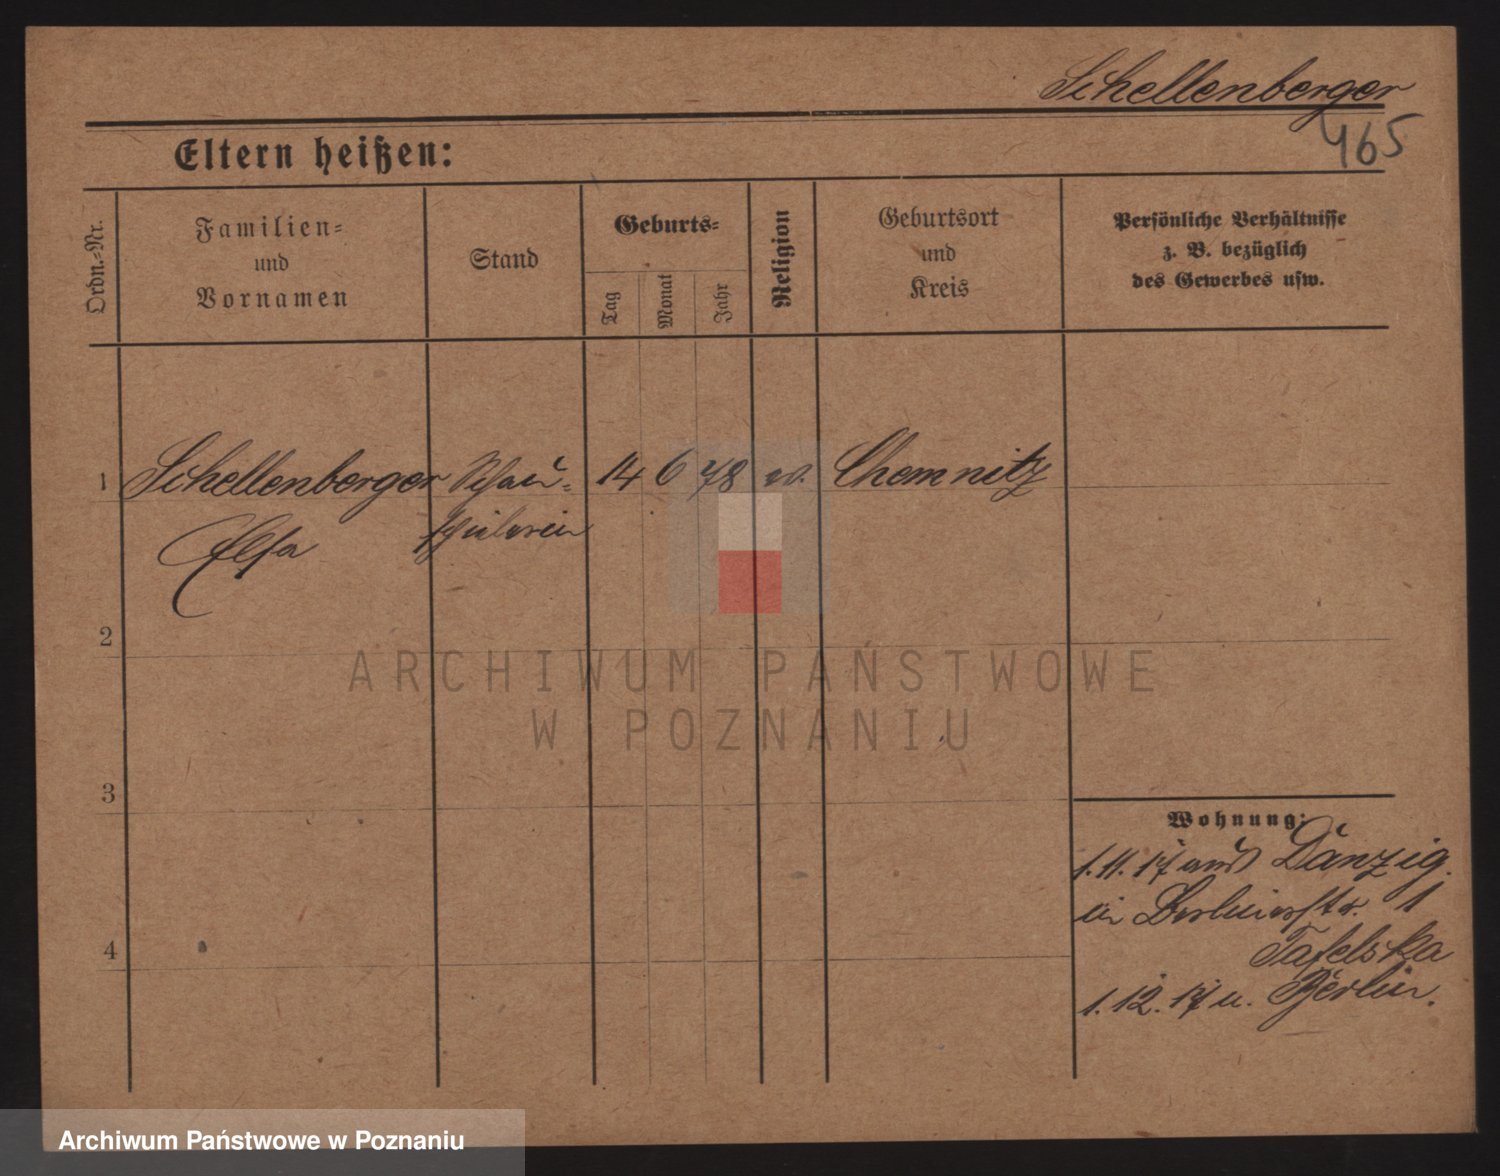 Schellenberger
465
Eltern heißen:
Ordn.-Nr.
Familien-
und
Vornamen
Stand
Geburts-
Tag
Monat
Jahr
Religion
Geburtsort
und
Kreis
Persönliche Verhältnisse
z. B. bezüglich
des Gewerbes usw.
1 Schellenberger Schau- 14 6 78 ev. Chemnitz
Elsa spielerin
2
3
4
Wohnung:
1.11.17 aus Danzig.
in Berlinerstr. 1
Tafelska
1.12.17 n. Berlin.
ARCHIWUM PAŃSTWOWE
W POZNANIU
Archiwum Państwowe w Poznaniu